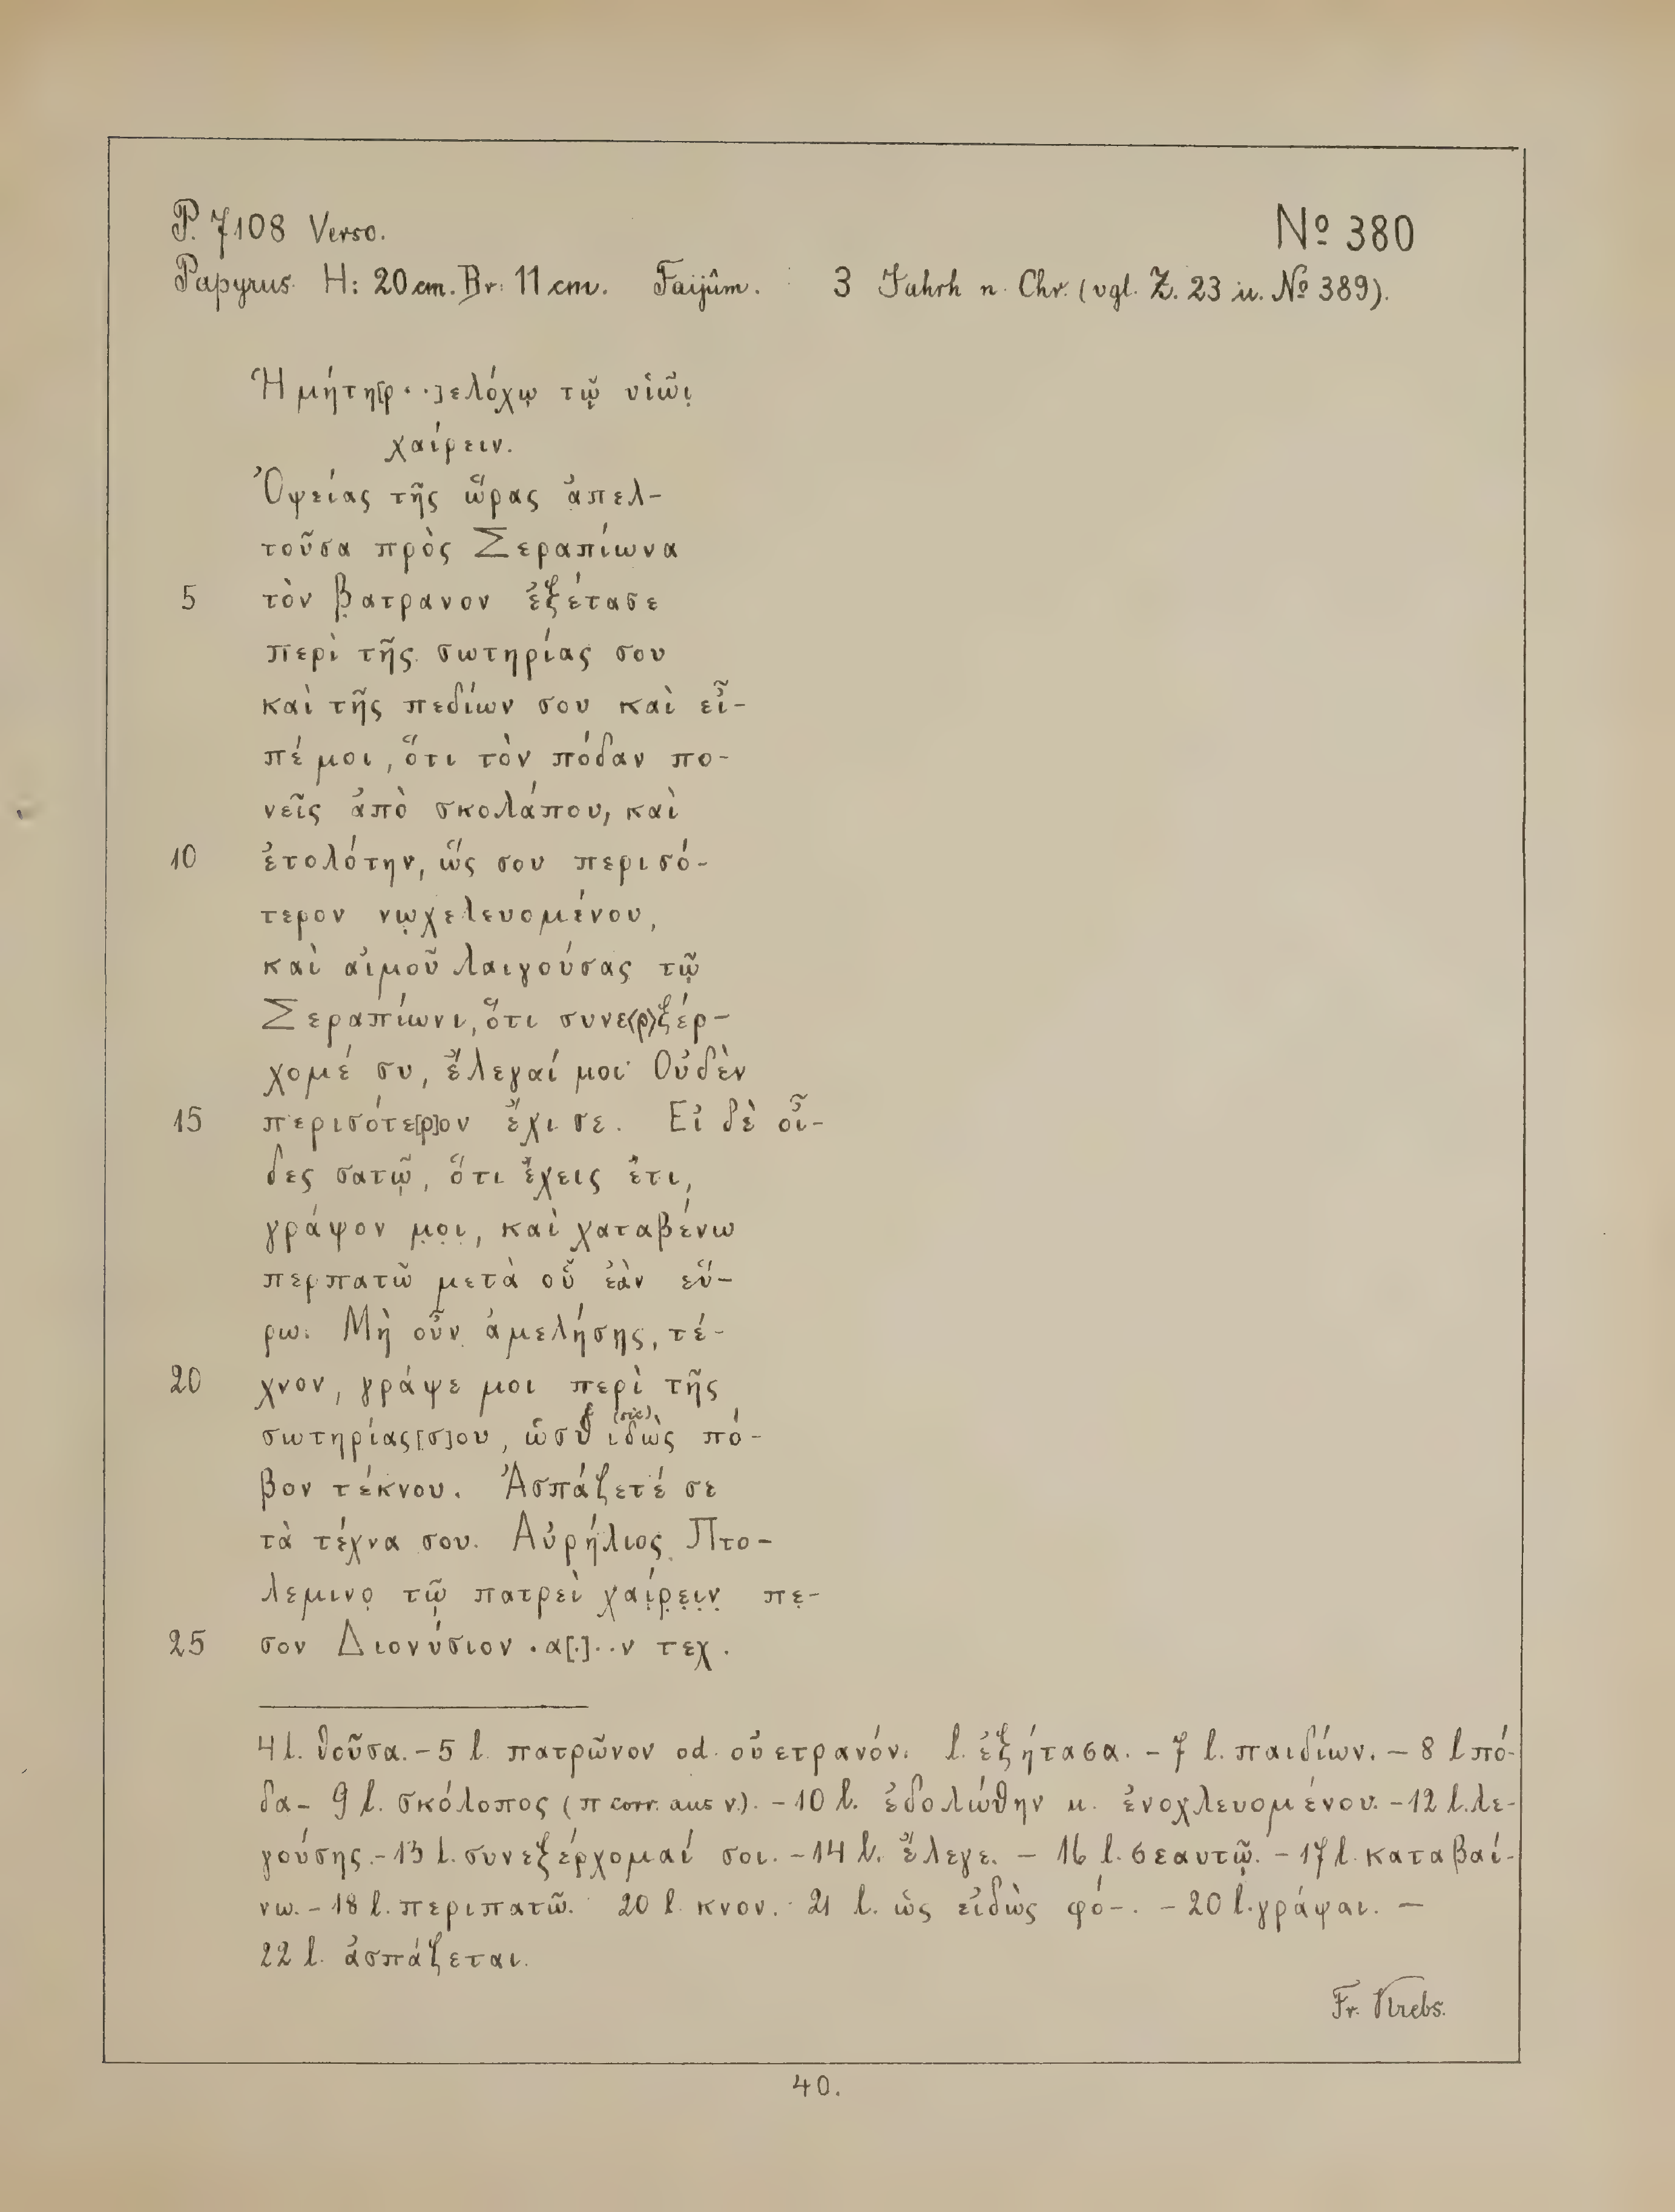 P. 7108 Verso. Nº 380
Papyrus. H: 20 cm. Br: 11 cm. Faijûm. 3 Jahrh n. Chr. (vgl. Z. 23 u. Nº 389).
Ἡ μήτη[ρ ··]ελόχῳ τῷ υἱῶι̣
χαίρειν.
Ὀψείας τῆς ὥρας ἀπελ-
τοῦσα πρὸς Σεραπίωνα
5 τὸν β̣ατρανον ἐξέτασε
περὶ τῆς σωτηρίας σου
καὶ τῆς πεδίων σου καὶ εἶ-
πέ μοι, ὅτι τὸν πόδαν πο-
νεῖς ἀπὸ σκολάπου, καὶ
10 ἐτολότην, ὥς σου περισό-
τερον νω̣χελευομένου,
καὶ αἰμοῦ λαιγούσας τῷ
Σεραπίωνι, ὅτι συνε⟨ρ⟩ξέρ-
χομέ συ, ἔλεγαί μοι· Οὐδὲν
15 περισότε[ρ]ον ἔχι σε. Εἰ δὲ οἶ-
δες σατῷ, ὅτι ἔχεις ἔτι,
γράψον μ̣ο̣ι̣, καὶ χαταβένω
περπατῶ μετὰ οὗ ἐὰν εὕ-
ρω. Μὴ οὖν ἀμελήσης, τέ-
20 χνον, γράψε μοι περὶ τῆς
σωτηρίας[σ]ου, ὡσ ἰδὼς (sic) πό-
βον τέκνου. Ἀσπάζετέ σε
τὰ τέχνα σου. Αὐρήλιος Πτο-
λεμινο̣ τῷ πατρεὶ χαί̣ρ̣ε̣ι̣ν̣ πε̣-
25 σον Διονύσιον ·α[·]··ν τεχ.
4 l. θοῦσα. – 5 l. πατρῶνον od. οὐετρανόν. l. ἐξήτασα. – 7 l. παιδίων. – 8 l πό-
δα – 9 l. σκόλοπος (π corr. aus ν.). – 10 l. ἐδολώθην u. ἐνοχλευομένου. – 12 l. λε-
γούσης. – 13 l. συνεξέρχομαί σοι. – 14 l. ἔλεγε. – 16 l. σεαυτῷ. – 17 l. καταβαί-
νω. – 18 l. περιπατῶ. 20 l. κνον. 21 l. ὡς εἰδὼς φό-. – 20 l. γράψαι. –
22 l. ἀσπάζεται.
Fr. Krebs.
40.